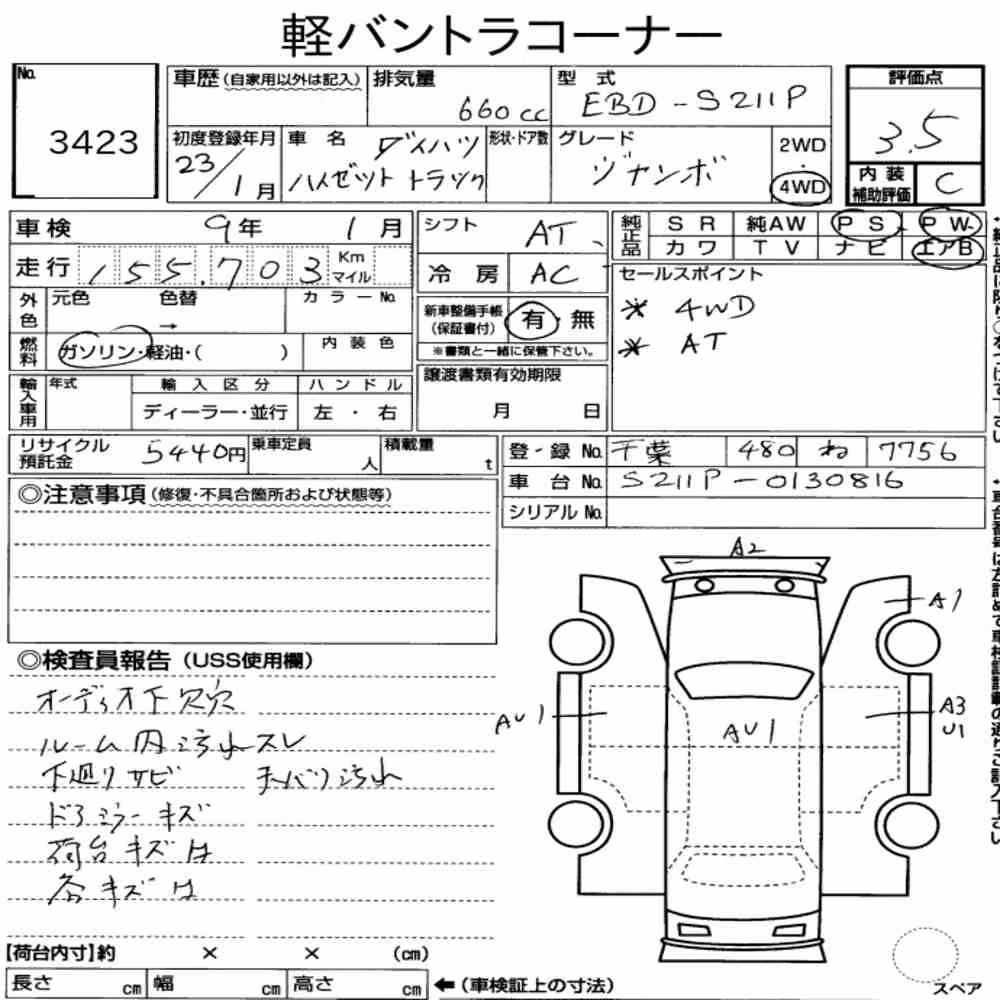 軽バントラコーナー
No. 3423
車歴 (自家用以外は記入) 排気量 660cc 型式 EBD-S211P
評価点 3.5
初度登録年月 23/1月 車名 ダイハツ ハイゼット トラック 形状・ドア数 グレード ジャンボ 2WD・4WD
内装補助評価 C
車検 9年 1月
走行 155,703 Km マイル
シフト AT
冷房 AC
純正品 SR 純AW PS PW
カワ TV ナビ エアB
セールスポイント
* 4WD
* AT
外色 元色 色替 → カラーNo.
燃料 ガソリン・軽油・( ) 内装色
新車整備手帳 (保証書付) 有 無
※書類と一緒に保管下さい。
輸入車用 年式 輸入区分 ハンドル
ディーラー・並行 左・右
譲渡書類有効期限
月 日
リサイクル預託金 5440円 乗車定員 人 積載量 t
登・録No. 千葉 480 ね 7756
車台No. S211P-0130816
シリアルNo.
◎注意事項 (修復・不具合箇所および状態等)
◎検査員報告 (USS使用欄)
オーディオ下欠穴
ルーム内汚れスレ
下廻りサビ 天バリ汚れ
ドアミラーキズ
荷台キズ凹
各キズ凹
A2
A1
AU1
AU1
A3
U1
【荷台内寸】約 × × (cm)
長さ cm 幅 cm 高さ cm ←(車検証上の寸法)
スペア